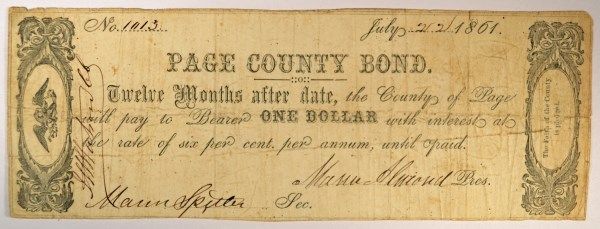 No. 1013
July 22 1861.
PAGE COUNTY BOND.
Twelve Months after date, the County of Page
will pay to Bearer ONE DOLLAR with interest at
the rate of six per cent. per annum, until paid.
Mann Almond Pres.
Mann Spitler Sec.
The Faith of the County
is pledged.